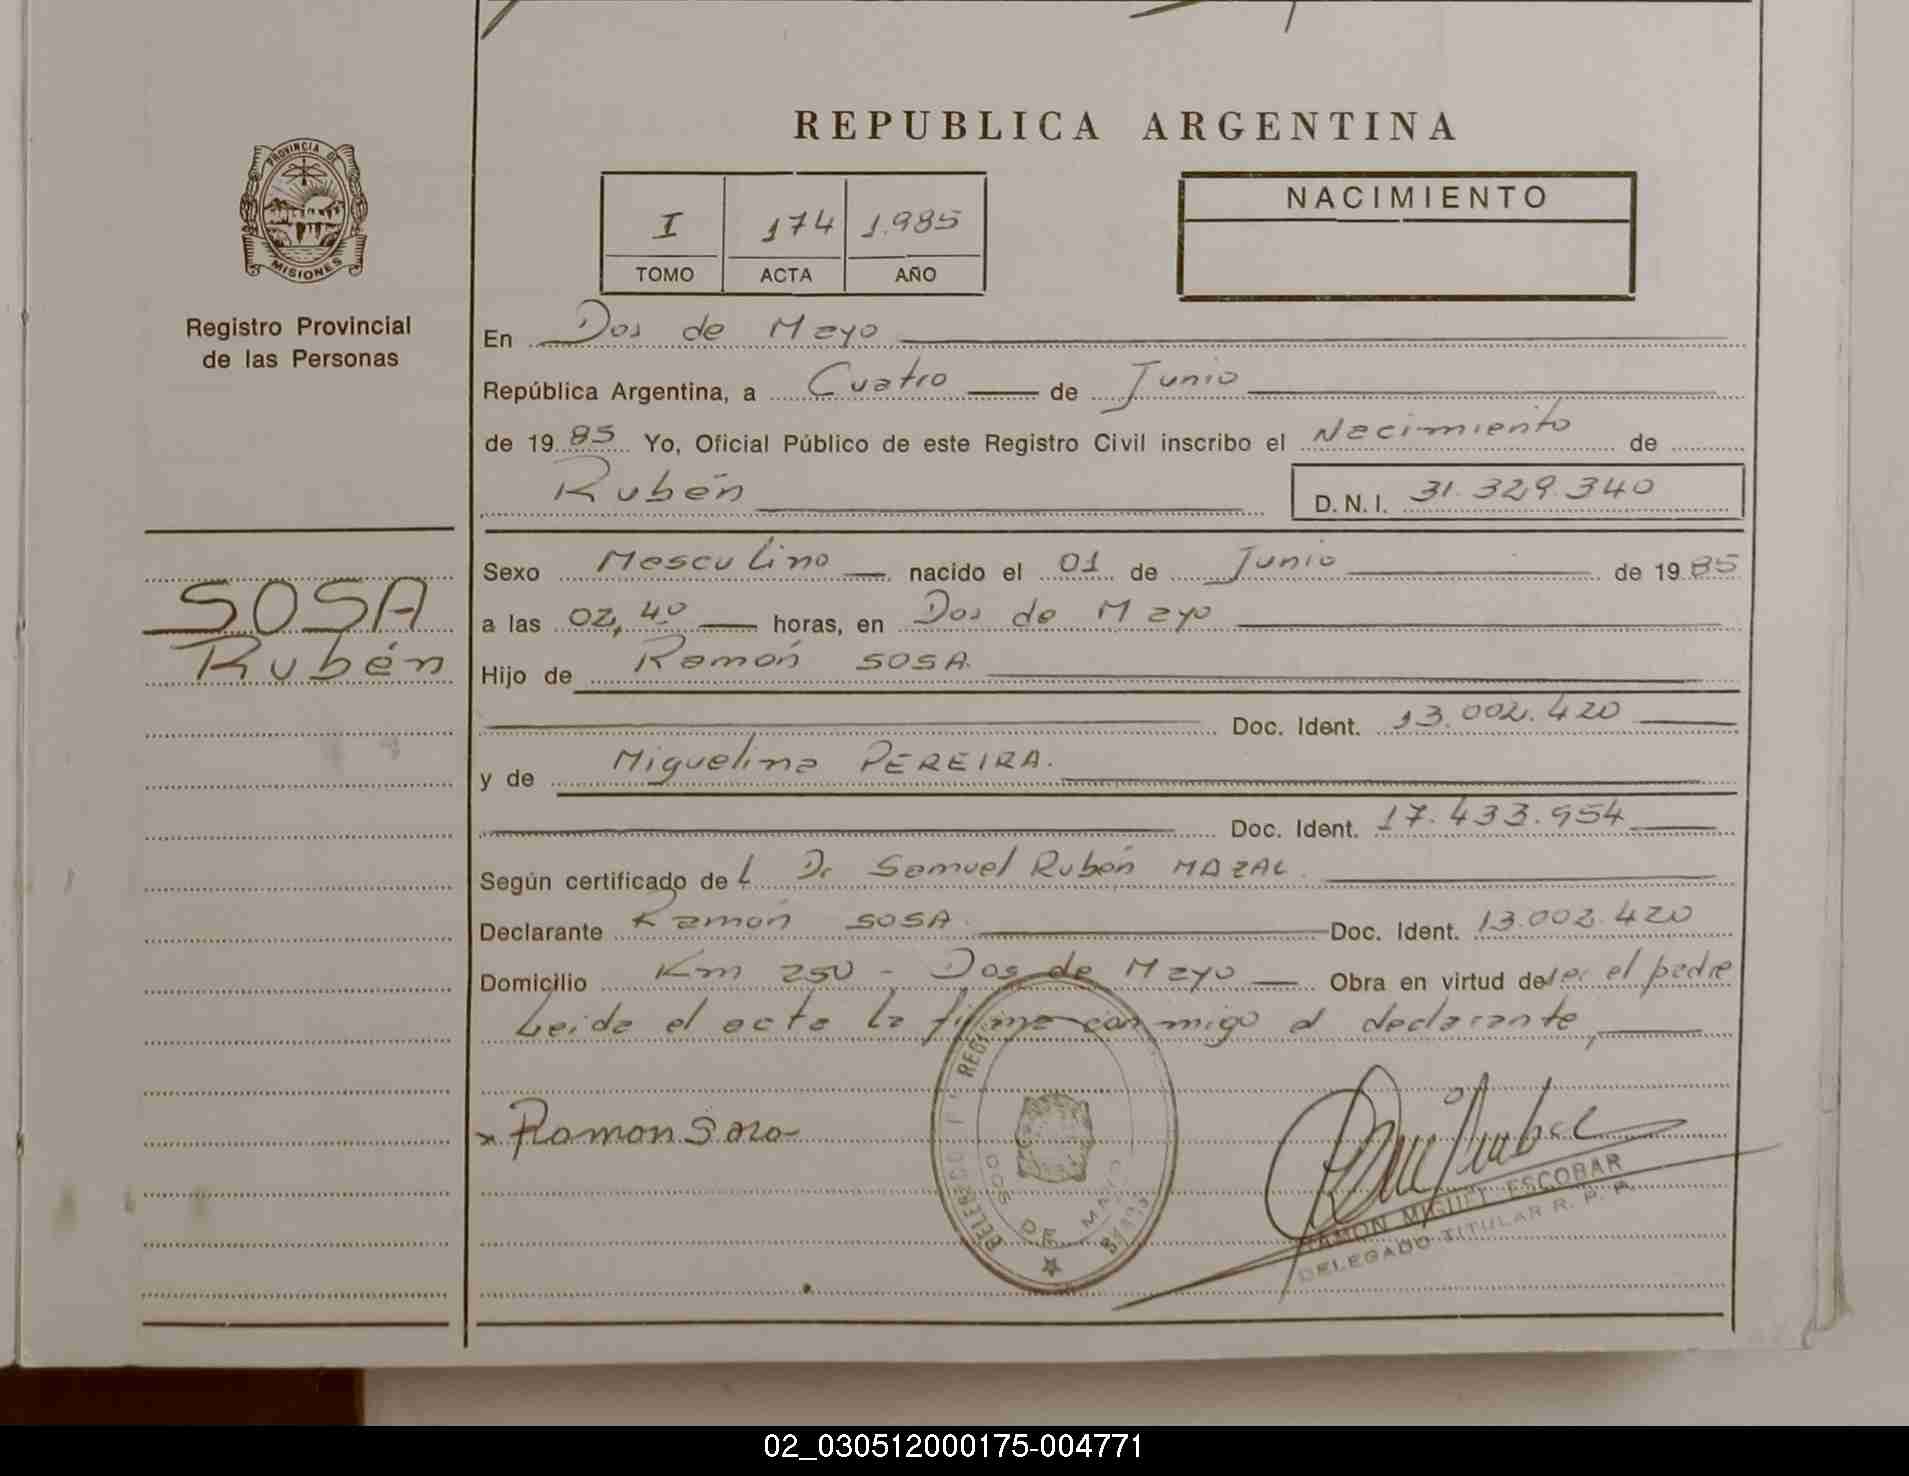 REPUBLICA ARGENTINA
PROVINCIA DE
MISIONES
Registro Provincial
de las Personas
I 174 1.985
TOMO ACTA AÑO
NACIMIENTO
En Dos de Mayo
República Argentina, a Cuatro de Junio
de 19 85 Yo, Oficial Público de este Registro Civil inscribo el Nacimiento de
Rubén D. N. I. 31.329.340
SOSA
Rubén
Sexo Masculino nacido el 01 de Junio de 19 85
a las 02,40 horas, en Dos de Mayo
Hijo de Ramón SOSA.
Doc. Ident. 13.002.420
y de Miguelina PEREIRA.
Doc. Ident. 17.433.954
Según certificado de l Dr Samuel Rubén MAZAL.
Declarante Ramón SOSA. Doc. Ident. 13.002.420
Domicilio Km 250 - Dos de Mayo Obra en virtud de ser el padre
Leida el acta la firma conmigo el declarante,
x Ramon Sosa
DOS DE MAYO
RAMON MIGUEL ESCOBAR
DELEGADO TITULAR R. P. P.
02_030512000175-004771